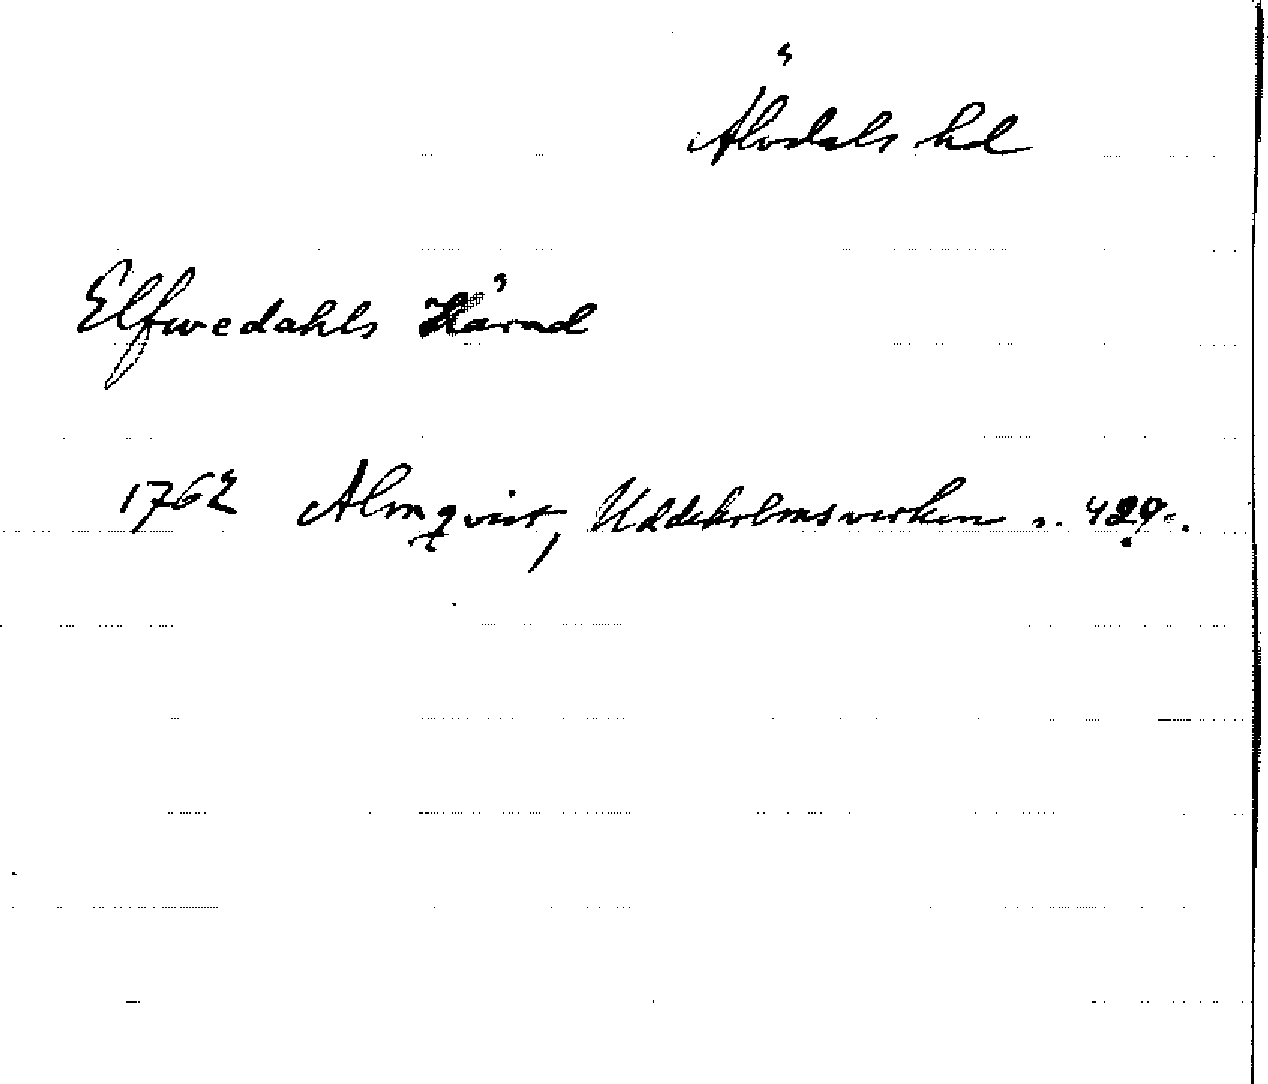 Älvdals hd
Elfwedahls Härad
1762 Almqvist, Uddeholmsverken s. 429.